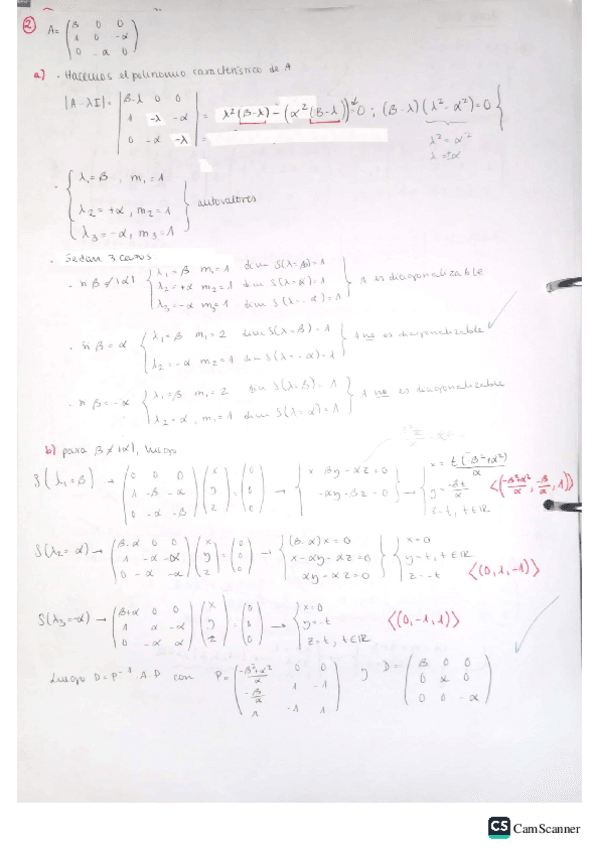 ② A = (β 0 0 / 1 0 -α / 0 -α 0)
a) · Hacemos el polinomio característico de A
|A - λI| = |β-λ 0 0 / 1 -λ -α / 0 -α -λ| = λ²(β-λ) - (α²(β-λ)) = 0 ; (β-λ)(λ² - α²) = 0
λ² = α²
λ = ±α
{ λ₁ = β , m₁ = 1
λ₂ = +α , m₂ = 1
λ₃ = -α , m₃ = 1 } autovalores
· Se dan 3 casos
· si β ≠ |α| { λ₁ = β m₁ = 1 dim S(λ=β) = 1
λ₂ = +α m₂ = 1 dim S(λ=α) = 1
λ₃ = -α m₃ = 1 dim S(λ=-α) = 1 } A es diagonalizable
· si β = α { λ₁ = β m₁ = 2 dim S(λ=β) = 1
λ₂ = -α m₂ = 1 dim S(λ=-α) = 1 } A no es diagonalizable
· si β = -α { λ₁ = β m₁ = 2 dim S(λ=β) = 1
λ₂ = α , m₂ = 1 dim S(λ=α) = 1 } A no es diagonalizable
b) para β ≠ |α|, luego
S(λ₁ = β) → (0 0 0 / 1 -β -α / 0 -α -β) (x / y / z) = (0 / 0 / 0) → { x βy - αz = 0 / -αy - βz = 0 → { x = t(-β²+α²)/α / y = -βt/α / z = t, t∈ℝ <(-β²+α²/α, -β/α, 1)>
S(λ₂ = α) → (β-α 0 0 / 1 -α -α / 0 -α -α) (x / y / z) = (0 / 0 / 0) → { (β-α)x = 0 / x - αy - αz = 0 / αy - αz = 0 { x = 0 / y = t, t∈ℝ / z = -t <(0,1,-1)>
S(λ₃ = -α) → (β+α 0 0 / 1 α -α / 0 -α α) (x / y / z) = (0 / 0 / 0) → { x = 0 / y = t / z = t, t∈ℝ <(0,-1,1)>
Luego D = P⁻¹ · A · D con P = (-β²+α²/α 0 0 / -β/α 1 -1 / 1 -1 1) y D = (β 0 0 / 0 α 0 / 0 0 -α)
CS CamScanner